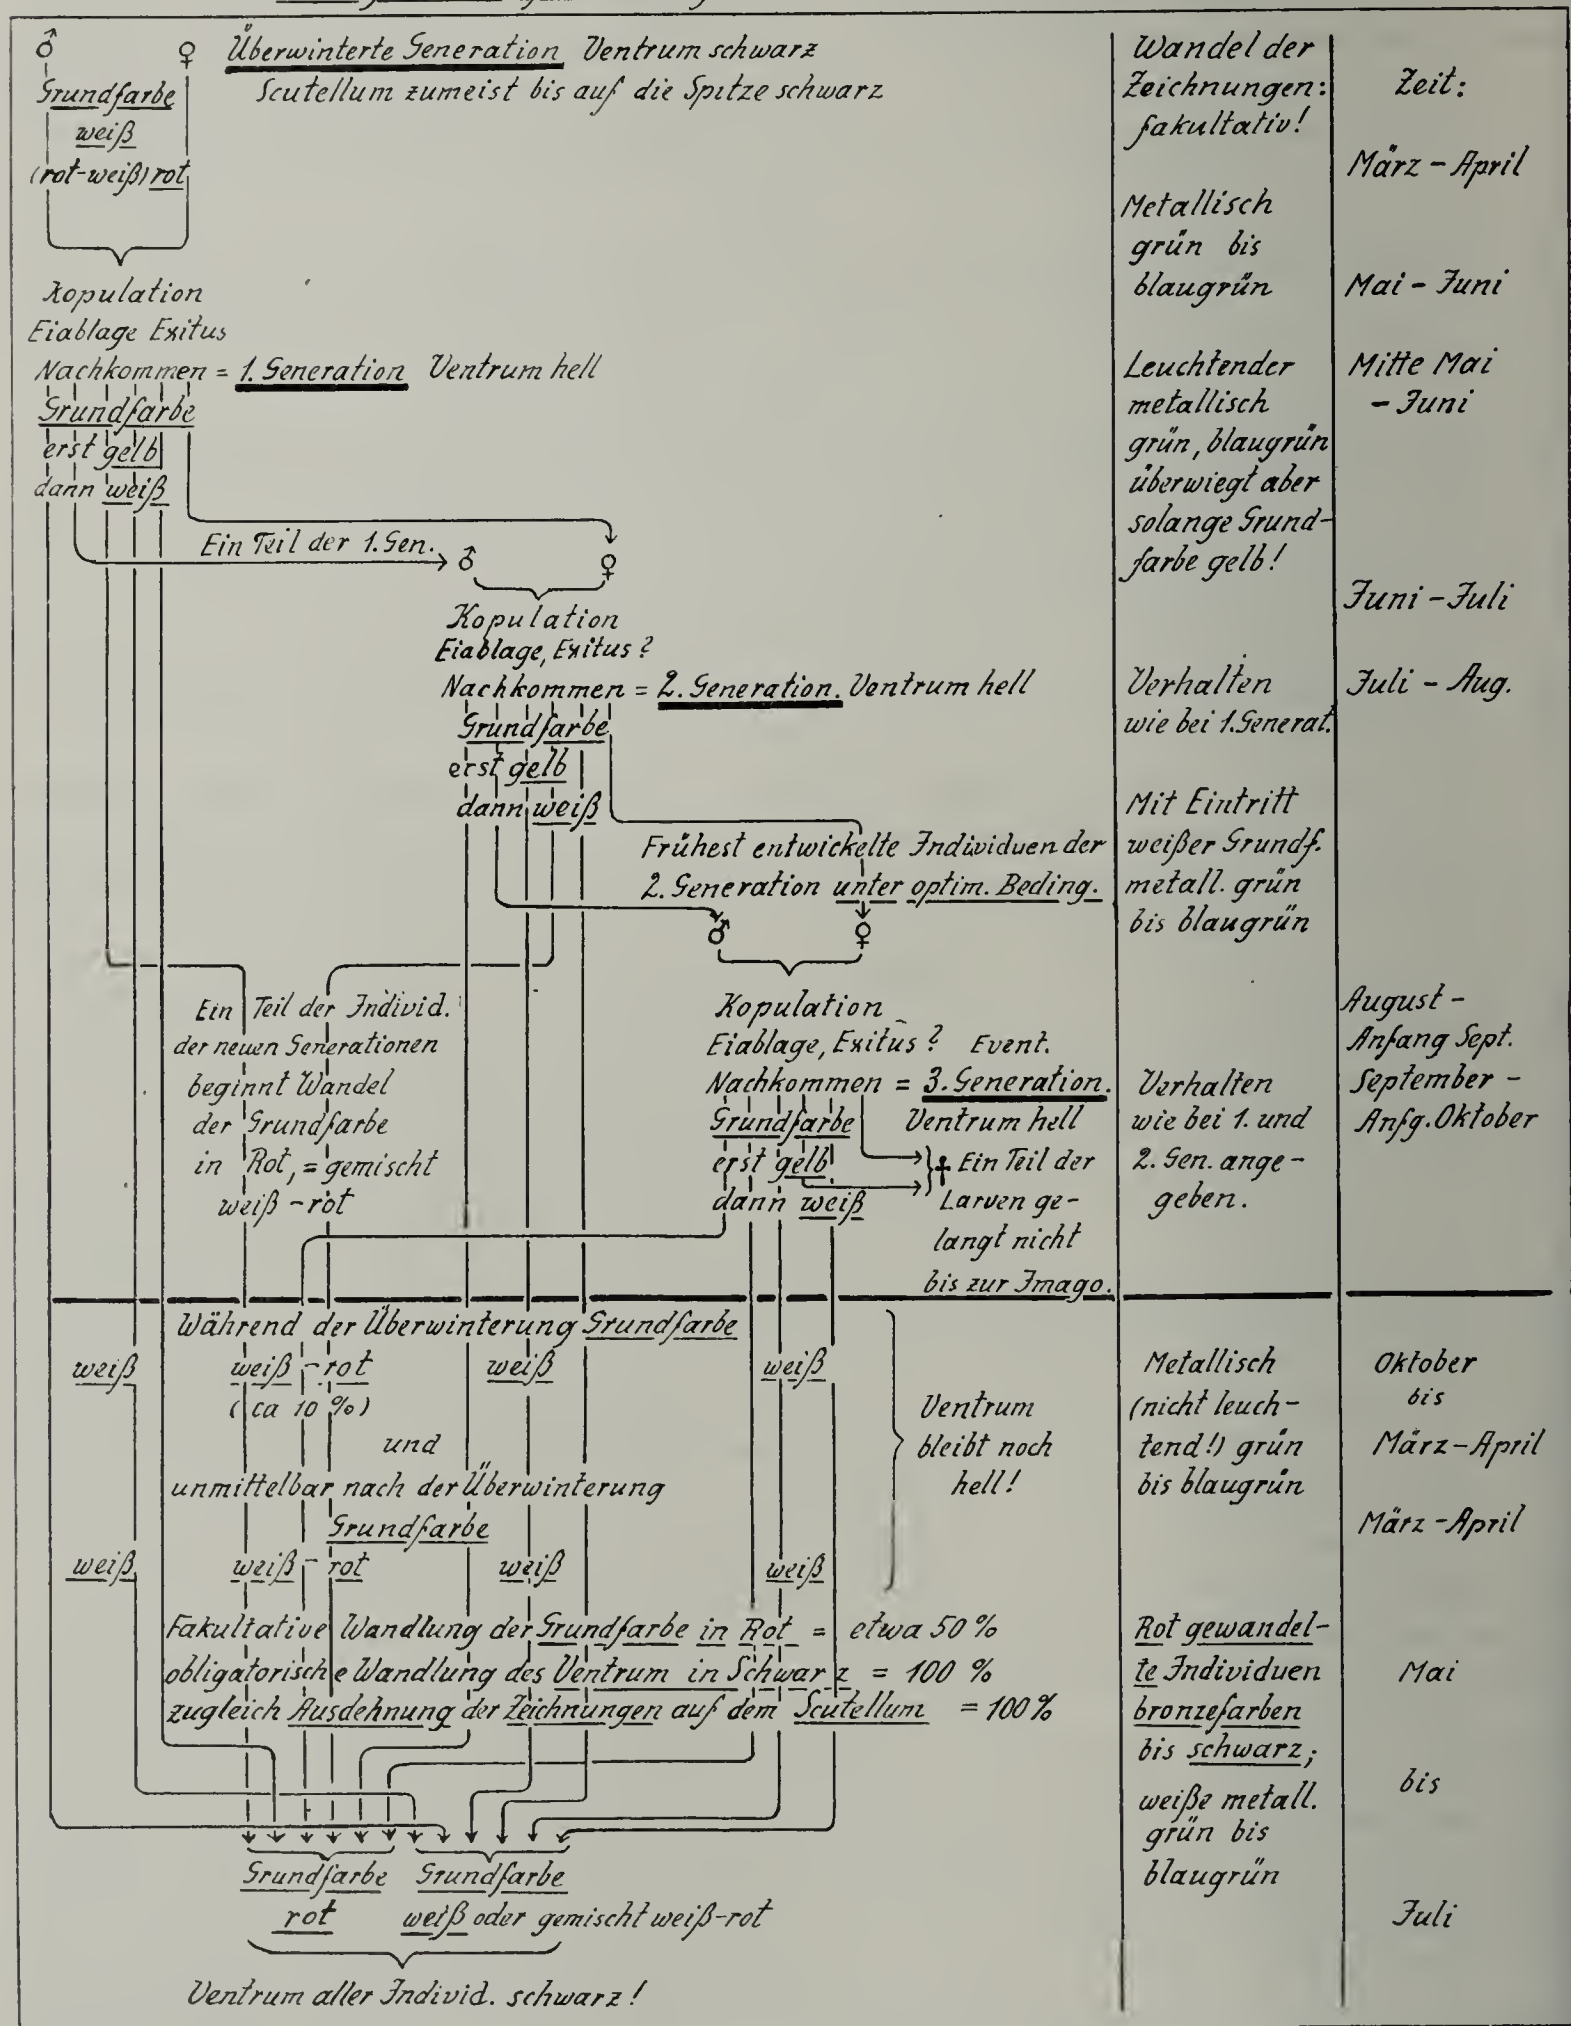 ♂ ♀ Überwinterte Generation Ventrum schwarz
Scutellum zumeist bis auf die Spitze schwarz
Grundfarbe
weiß
(rot-weiß) rot
Kopulation
Eiablage Exitus
Nachkommen = 1. Generation Ventrum hell
Grundfarbe
erst gelb
dann weiß
Ein Teil der 1. Gen. ♂ ♀
Kopulation
Eiablage, Exitus?
Nachkommen = 2. Generation. Ventrum hell
Grundfarbe
erst gelb
dann weiß
Frühest entwickelte Individuen der
2. Generation unter optim. Beding.
♂ ♀
Kopulation
Eiablage, Exitus? Event.
Nachkommen = 3. Generation.
Grundfarbe Ventrum hell
erst gelb
dann weiß
† Ein Teil der
Larven ge-
langt nicht
bis zur Imago.
Ein Teil der Individ.
der neuen Generationen
beginnt Wandel
der Grundfarbe
in Rot, = gemischt
weiß-rot
Während der Überwinterung Grundfarbe
weiß weiß-rot weiß weiß
(ca 10 %)
und
unmittelbar nach der Überwinterung
Grundfarbe
weiß weiß-rot weiß weiß
Ventrum
bleibt noch
hell!
Fakultative Wandlung der Grundfarbe in Rot = etwa 50 %
obligatorische Wandlung des Ventrum in Schwarz = 100 %
zugleich Ausdehnung der Zeichnungen auf dem Scutellum = 100 %
Grundfarbe Grundfarbe
rot weiß oder gemischt weiß-rot
Ventrum aller Individ. schwarz!
Wandel der
Zeichnungen:
fakultativ!
Metallisch
grün bis
blaugrün
Leuchtender
metallisch
grün, blaugrün
überwiegt aber
solange Grund-
farbe gelb!
Verhalten
wie bei 1. Generat.
Mit Eintritt
weißer Grundf.
metall. grün
bis blaugrün
Verhalten
wie bei 1. und
2. Gen. ange-
geben.
Metallisch
(nicht leuch-
tend!) grün
bis blaugrün
Rot gewandel-
te Individuen
bronzefarben
bis schwarz;
weiße metall.
grün bis
blaugrün
Zeit:
März - April
Mai - Juni
Mitte Mai
- Juni
Juni - Juli
Juli - Aug.
August -
Anfang Sept.
September -
Anfg. Oktober
Oktober
bis
März-April
März - April
Mai
bis
Juli